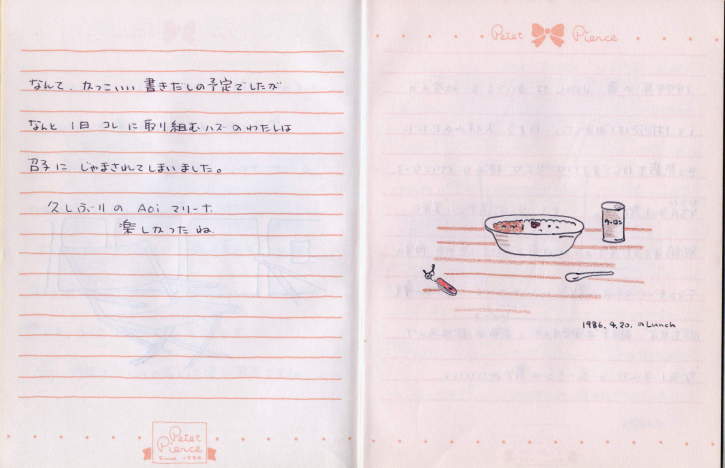 なんて、かっこいい 書きだしの予定でしたが
なんと 1日 コレ に取り組むハズ のわたしは
召子に じゃまされてしまいました。
久しぶりの Aoi マリーナ
楽しかった ね
Peter Pierce
Since 1980
Peter Pierce
ウーロン
1986. 4. 20. のLunch